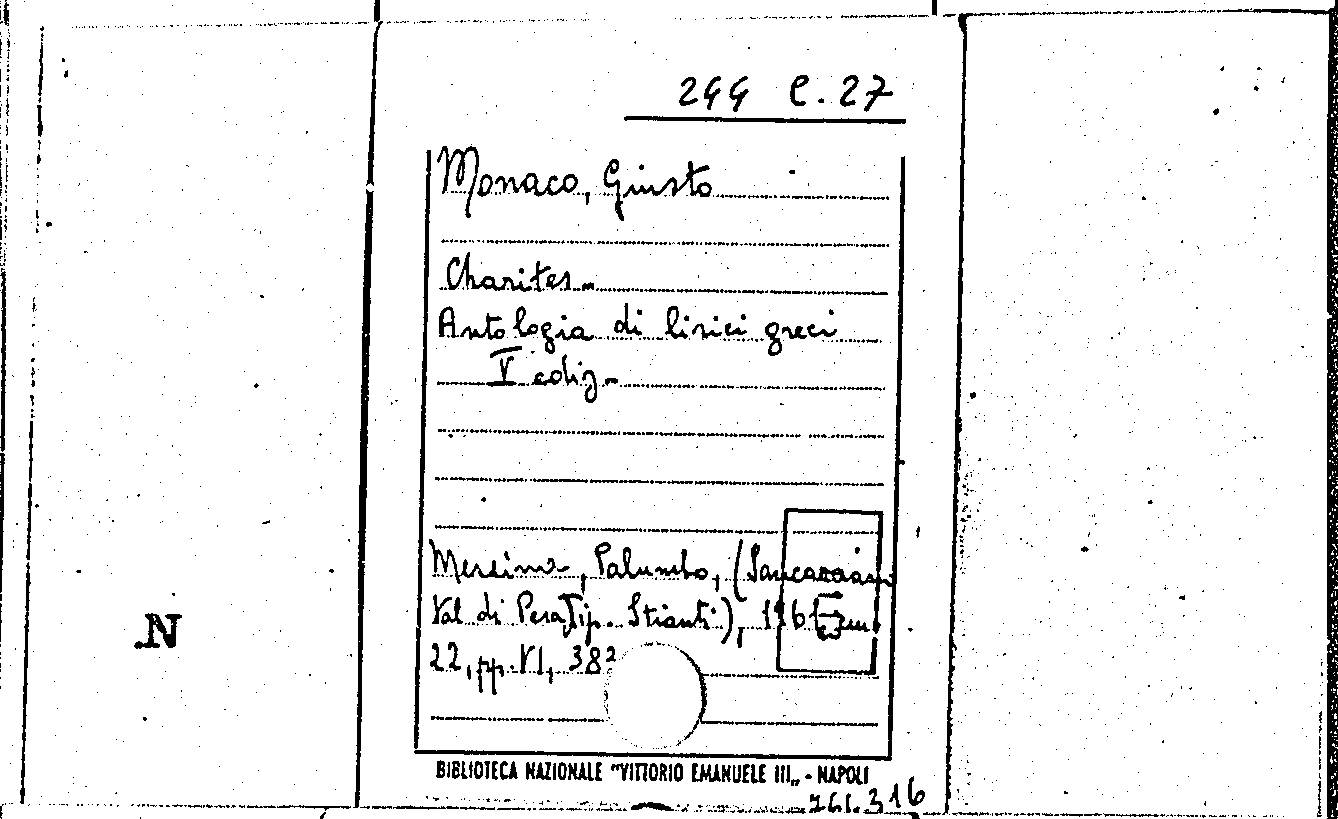 244 C.27
Monaco, Giusto
Charites.
Antologia di lirici greci
V ediz.
Messina, Palumbo, (Sancasciani
Val di Pesa, Tip. Stianti), 196 , m.
22, pp. VI, 382
BIBLIOTECA NAZIONALE "VITTORIO EMANUELE III„ - NAPOLI
.N